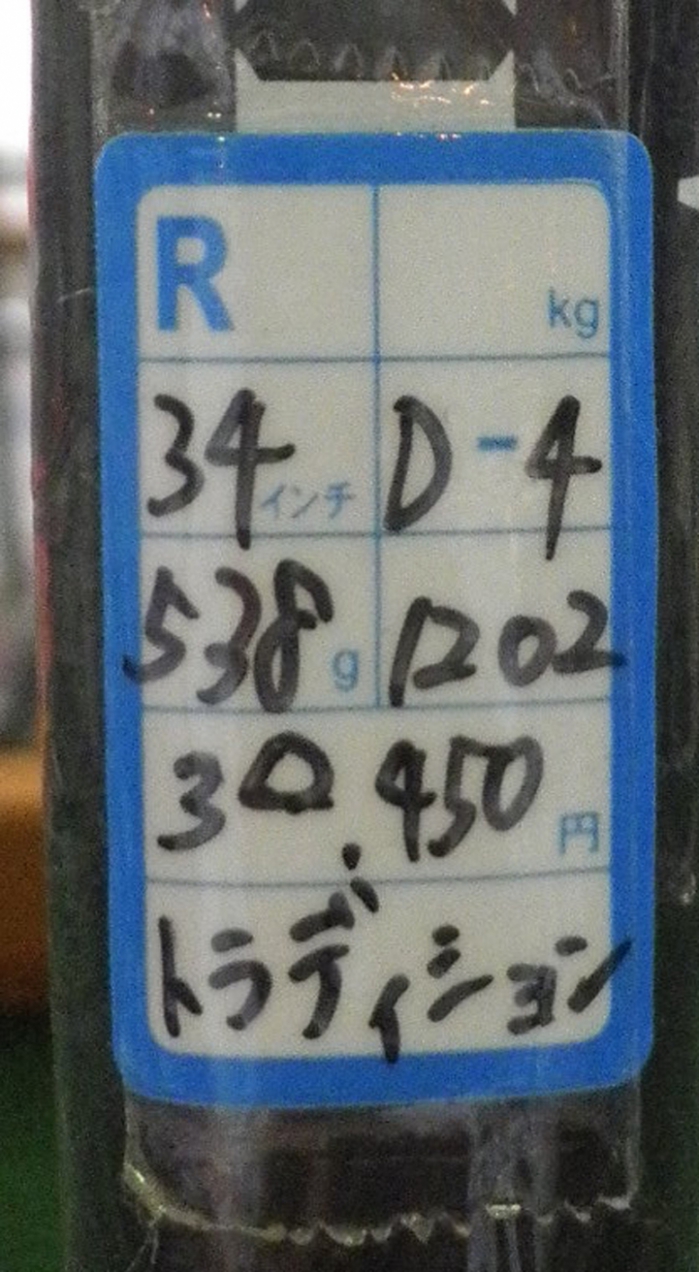 R kg
34インチ D-4
538g 1202
30,450円
トラディション